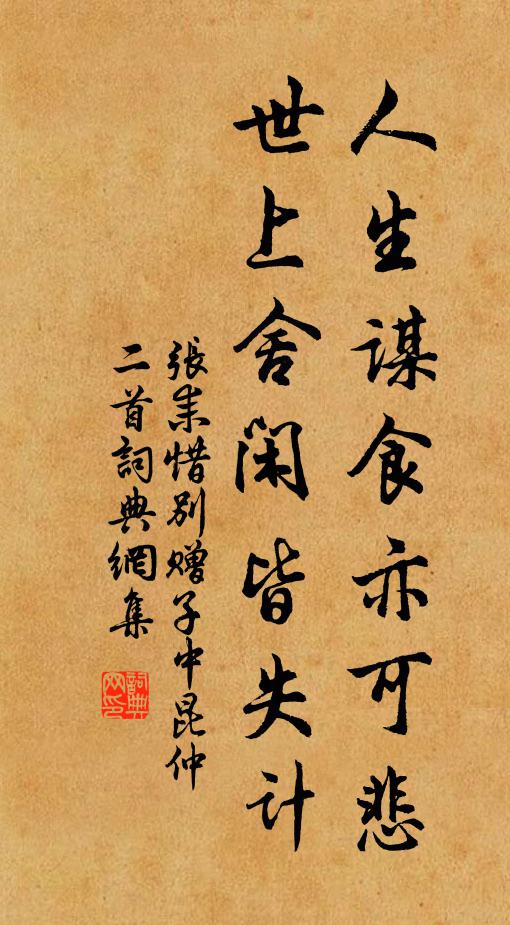 人生謀食亦可悲
世上舍閑皆失計
張耒惜别贈子中昆仲
二首詞典網集
詞典
网印